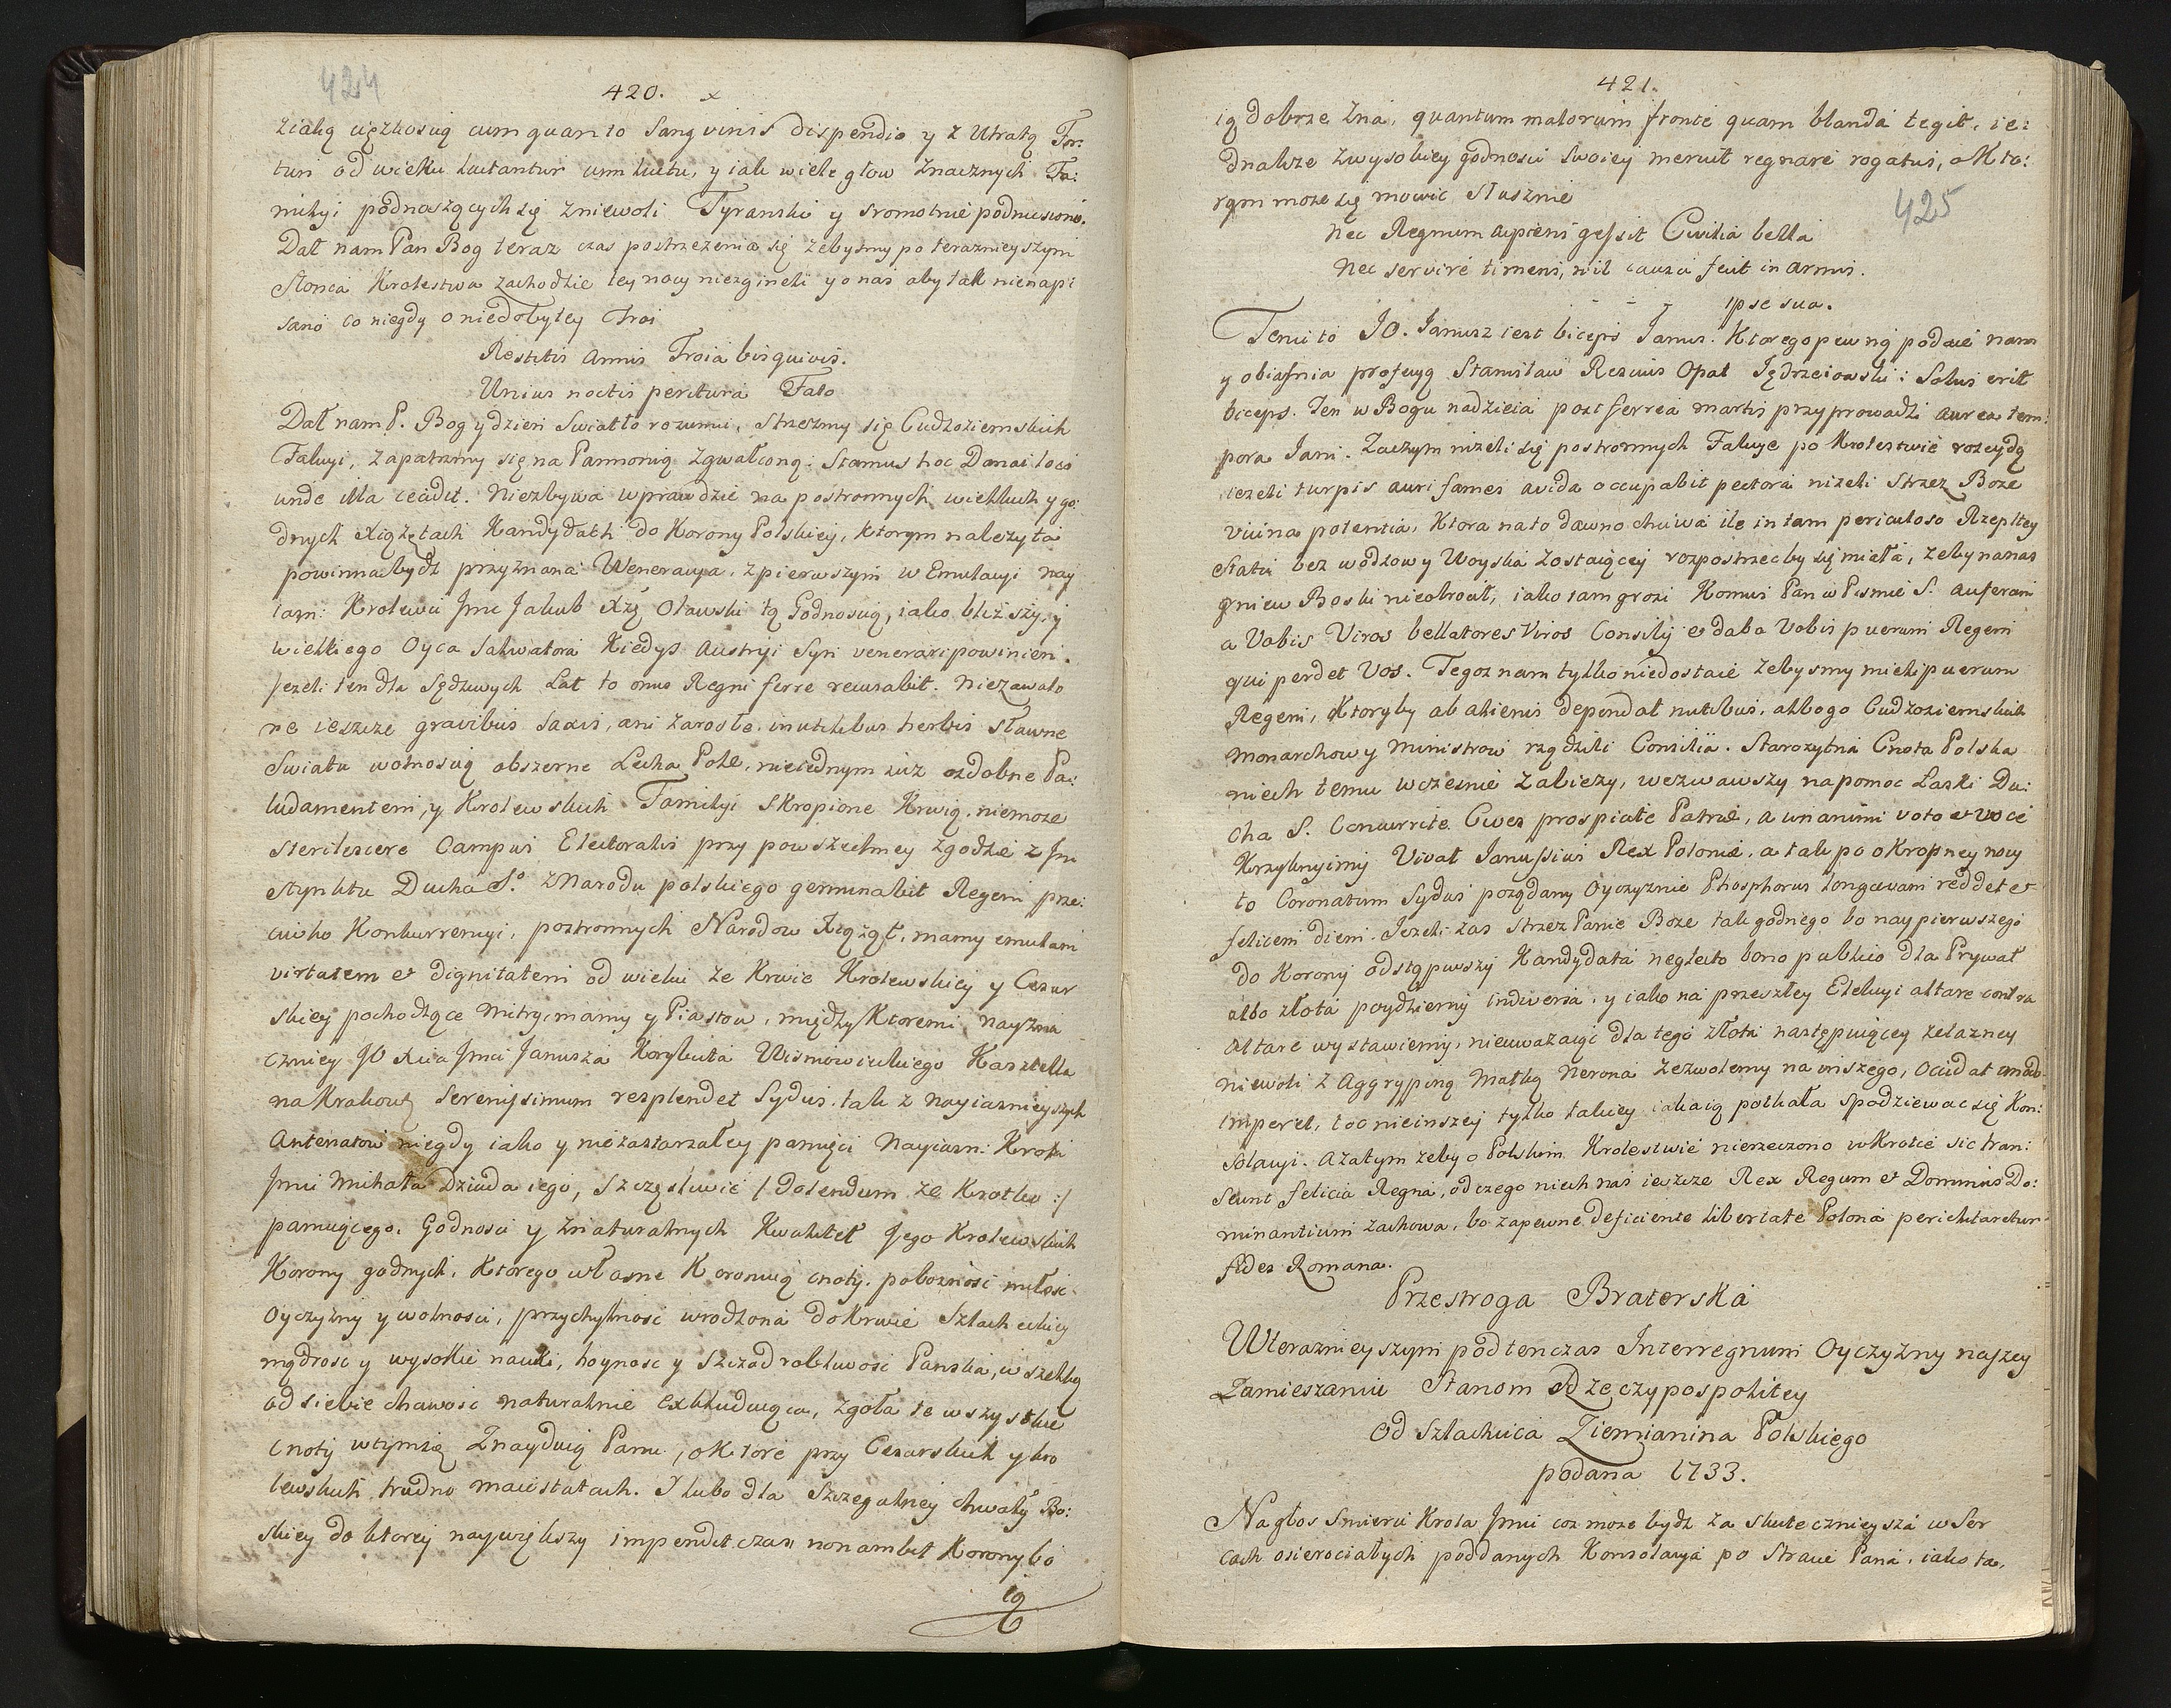 424
420. x
żiaką ciężkoscią cum quanto Sangvinis dispendio y z Utratą For:
tun od wieku luctantur cum luctu, y iak wiele głow Znacznych Fa:
miliyi podnoszących się z niewoli Tyranski y sromotnie podniesiono.
Dał nam Pan Bog teraz czas postrzeżenia się żebysmy po terazniejszym
Słonca Krolestwa zachodzie tey nocy niezgineli y o nas aby tak nienapi
sano co niegdy o niedobytey Troi
Restitis annis Troia bisquivis.
Unius noctis peritura Fato
Dał nam P. Bog y dzien Swiatło rozumu, Strzezmy się Cudzoziemskich
Fakcyi, zapatrzmy się na Pannonią zgwałconą: Stamus hoc Danai loco
unde illa cecidit. Niezbywa wprawdzie na postronnych wielkich y go:
dnych Xiążętach Kandydach do Korony Polskiey, ktorym należyta
powinna bydz przyznana Weneracya, z pierwszym w Emulacyi nay
iasn: Krolewic Jmc Jakub Xżę Oławski tą Godnoscią, iako bliższy, y
wielkiego Oyca Salwatora Kiedys Austryi Syn venerari powinien.
Jezeli ten dla Sędziwych Lat to onus Regni ferre recusabit. Niezawalo
ne ieszcze gravibus Saxis, ani zarosłe inutilibus herbis sławne
Swiatu wolnoscią obszerne Lecha Pole, nieiednym iuz ozdobne Pa:
ludamentem, y Krolewskich Familyi skropione Krwią, niemoze
sterilescere Campus Electoralis przy powszechney zgodzie z Jn
stynktu Ducha S.º z Narodu polskiego germinabit Regem prze:
ciwko Konkurrencyi, postronnych Narodow Xiążąt, mamy emulam
virtutem et dignitatem od wieku ze Krwie Krolewskiey y Cesar
skiey pochodzące Mitry, mamy y Piastow, między Ktoremi nayzna
czniey JO Xcia Jmci Janusza Korybuta Wisniowieckiego Kasztella
na Krakows Serenissimum resplendet Sydus, tak z nayiasnieyszych
Antenatow niegdy iako y niezastarzałey pamięci Nayiasn: Krola
Jmci Michała Dziada iego, Szczęsliwie /: Dolendum ze Krotko :/
panuiącego. Godnosci y z naturalnych Kwalitet Jego Krolewskich
Korony godnych. Ktorego własne Koronuią cnoty, pobożność miłość
Oyczyzny y wolnosci, przychylność wrodzona do Krwie Szlacheckiey
mądrosc y wysokie nauki, hoynosc y szczodrobliwosc Panska, wszelką
od siebie chciwosc naturalnie excluduiąca, zgoła te wszystkie
cnoty w tym się znayduią Panu, o ktore przy Cesarskich y Kro
lewskich trudno maiestatach. I lubo dla Szczegulney chwały Bo:
skiey do ktorey naywiększy impendit czas, non ambit Korony bo
ią
421.
425
ią dobrze zna, quantum malorum fronte quam blanda tegit, ie:
dnakze z wysokiey godnosci swoiey meruit regnare rogatus, o Kto:
rym moze się mowic słusznie
Nec Regnum cupiens gessit Civilia bella
Nec servire timens, nil causa fecit in armis.
- - - ipse sua.
Ten ito JO. Janusz iest biceps Janus. Ktorego pewną podaie nam
y obiasnia profecyą Stanisław Rescius Opat Jędrzeiowski: Solus erit
biceps. Ten w Bogu nadzieia post ferrea martis przyprowadzi aurea tem:
pora Jani. Zaczym nizeli się postronnych Fakcye po Krolestwie rozeydą
iezeli turpis auri fames avida occupabit pectora nizeli Strzez Boze
vicina potentia, Ktora na to dawno chciwa ile in tam periculoso Rzepltey
Statu bez wodzow y Woyska zostaiącey rozpostrzecby się miała, żeby na nas
gniew Boski nieobrocił, iako tam grozi Komus Pan w Pismie S. auferam
a Vobis Viros bellatores Viros Consilij et dabo Vobis puerum Regem
qui perdet Vos. Tegoz nam tylko niedostaie żebysmy mieli puerum
Regem, Ktoryby ab alienis dependat nutibus, albo go Cudzoziemskich
Monarchow y Ministrow rządzili Consilia. Starozytna Cnota Polska
niech temu wczesnie zabieży, wezwawszy na pomoc Łaski Du:
cha S. Concurrite Cives prospicite Patriæ, a unanimi voto et voce
Krzyknyimy Vivat Janussius Rex Poloniæ, a tak po okropney nocy
to Coronatum Sydus pożądany Oyczyznie Phosphorus longævam reddet et
felicem diem. Jezeli zas strzez Panie Boze tak godnego bo naypierwszego
do Korony odstąpiwszy Kandydata neglecto bono publico dla Prywat
albo złota poydziemy indiversa, y iako na przeszłey Elekcyi altare contra
altare wystawiemy, nieuwazaiąc dla tego złota następuiącey żelazney
niewoli z Aggrypiną Matką Nerona zezwolemy na inszego, Occidat modo
imperet, to o nieinszey tylko takiey iaka ią potkała spodziewac się Kon:
solacyi. Azatym zeby o Polskim Krolestwie nierzeczono wkrotce sic tran:
seunt felicia Regna, od czego niech nas ieszcze Rex Regum et Dominus Do:
minantium zachowa, bo zapewne deficiente libertate Polona periclitaretur
fides Romana.
Przestroga Braterska
W terazniejszym podtenczas Interregnum Oyczyzny naszey
Zamieszaniu Stanom Rzeczypospolitey
Od Szlachcica Ziemianina Polskiego
podana 1733.
Na głos Smierci Krola Jmci coz moze bydz za skutecznieysza w Ser
cach osierociałych poddanych Konsolacya po Stracie Pana, iako ta,